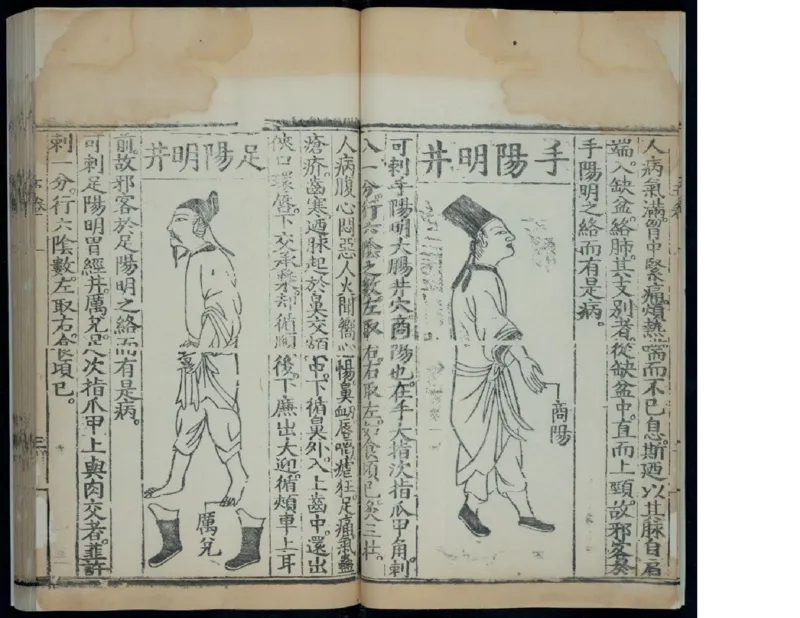 人病氣滿。胷中緊痛煩熱喘而不已息。斯廼以其脉自肩
端。入缺盆絡肺。其支别者。從缺盆中。直而上頸。故邪客
手陽明之絡而有是病。
手陽明井
商陽
可刺手陽明大腸井穴商陽也。在手大指次指爪甲角。刺
入一分。行六陰之數。左取右。右取左。食頃已。灸三壯。
人病腹心悶惡人火聞嚮心惕。鼻衂唇喎瘧狂。足痛氣蠱
瘡疥。齒寒。廼脉起於鼻交頞中。下循鼻外。入上齒中。還出
俠口環唇。下交承漿。却循頤後下廉出大迎。循頰車上耳
足陽明井
厲兌
前。故邪客於足陽明之絡而有是病。
可刺足陽明胃經井。厲兌。足次指爪甲上與肉交者。韮許
刺一分。行六陰數。左取右。食頃已。